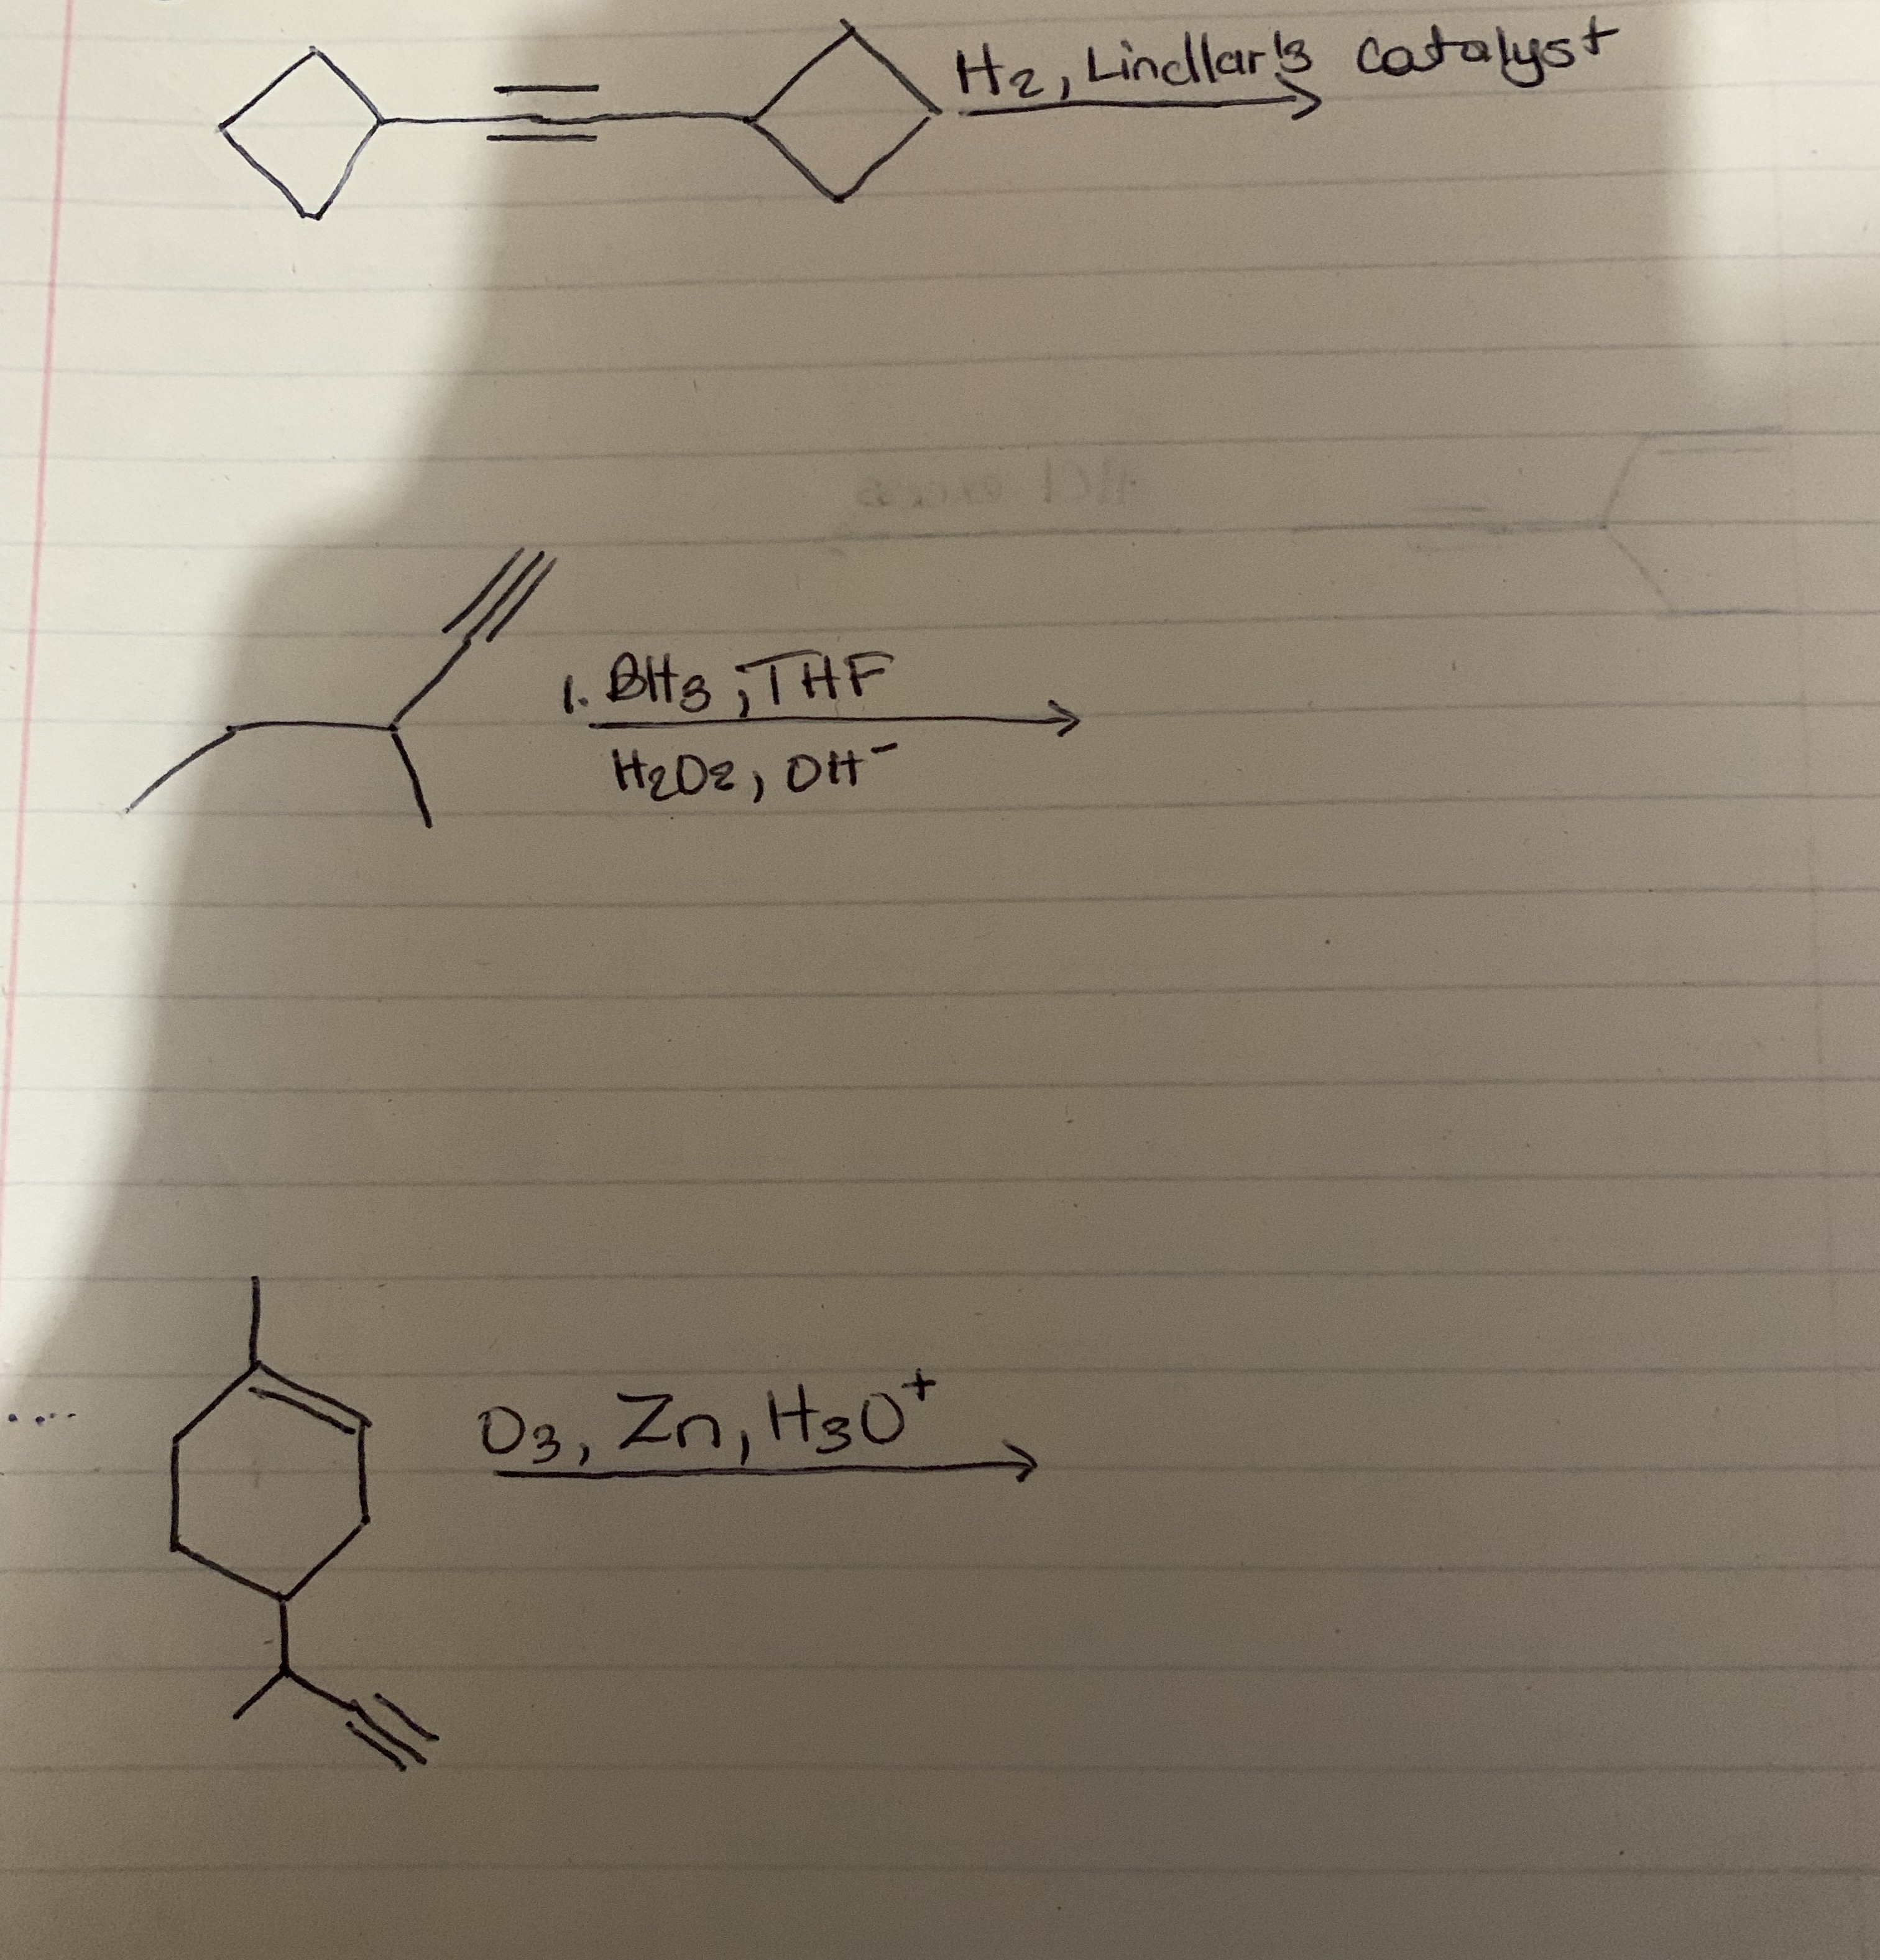 H₂, Lindlar's catalyst
1. BH₃, THF
H₂O₂, OH⁻
O₃, Zn, H₃O⁺